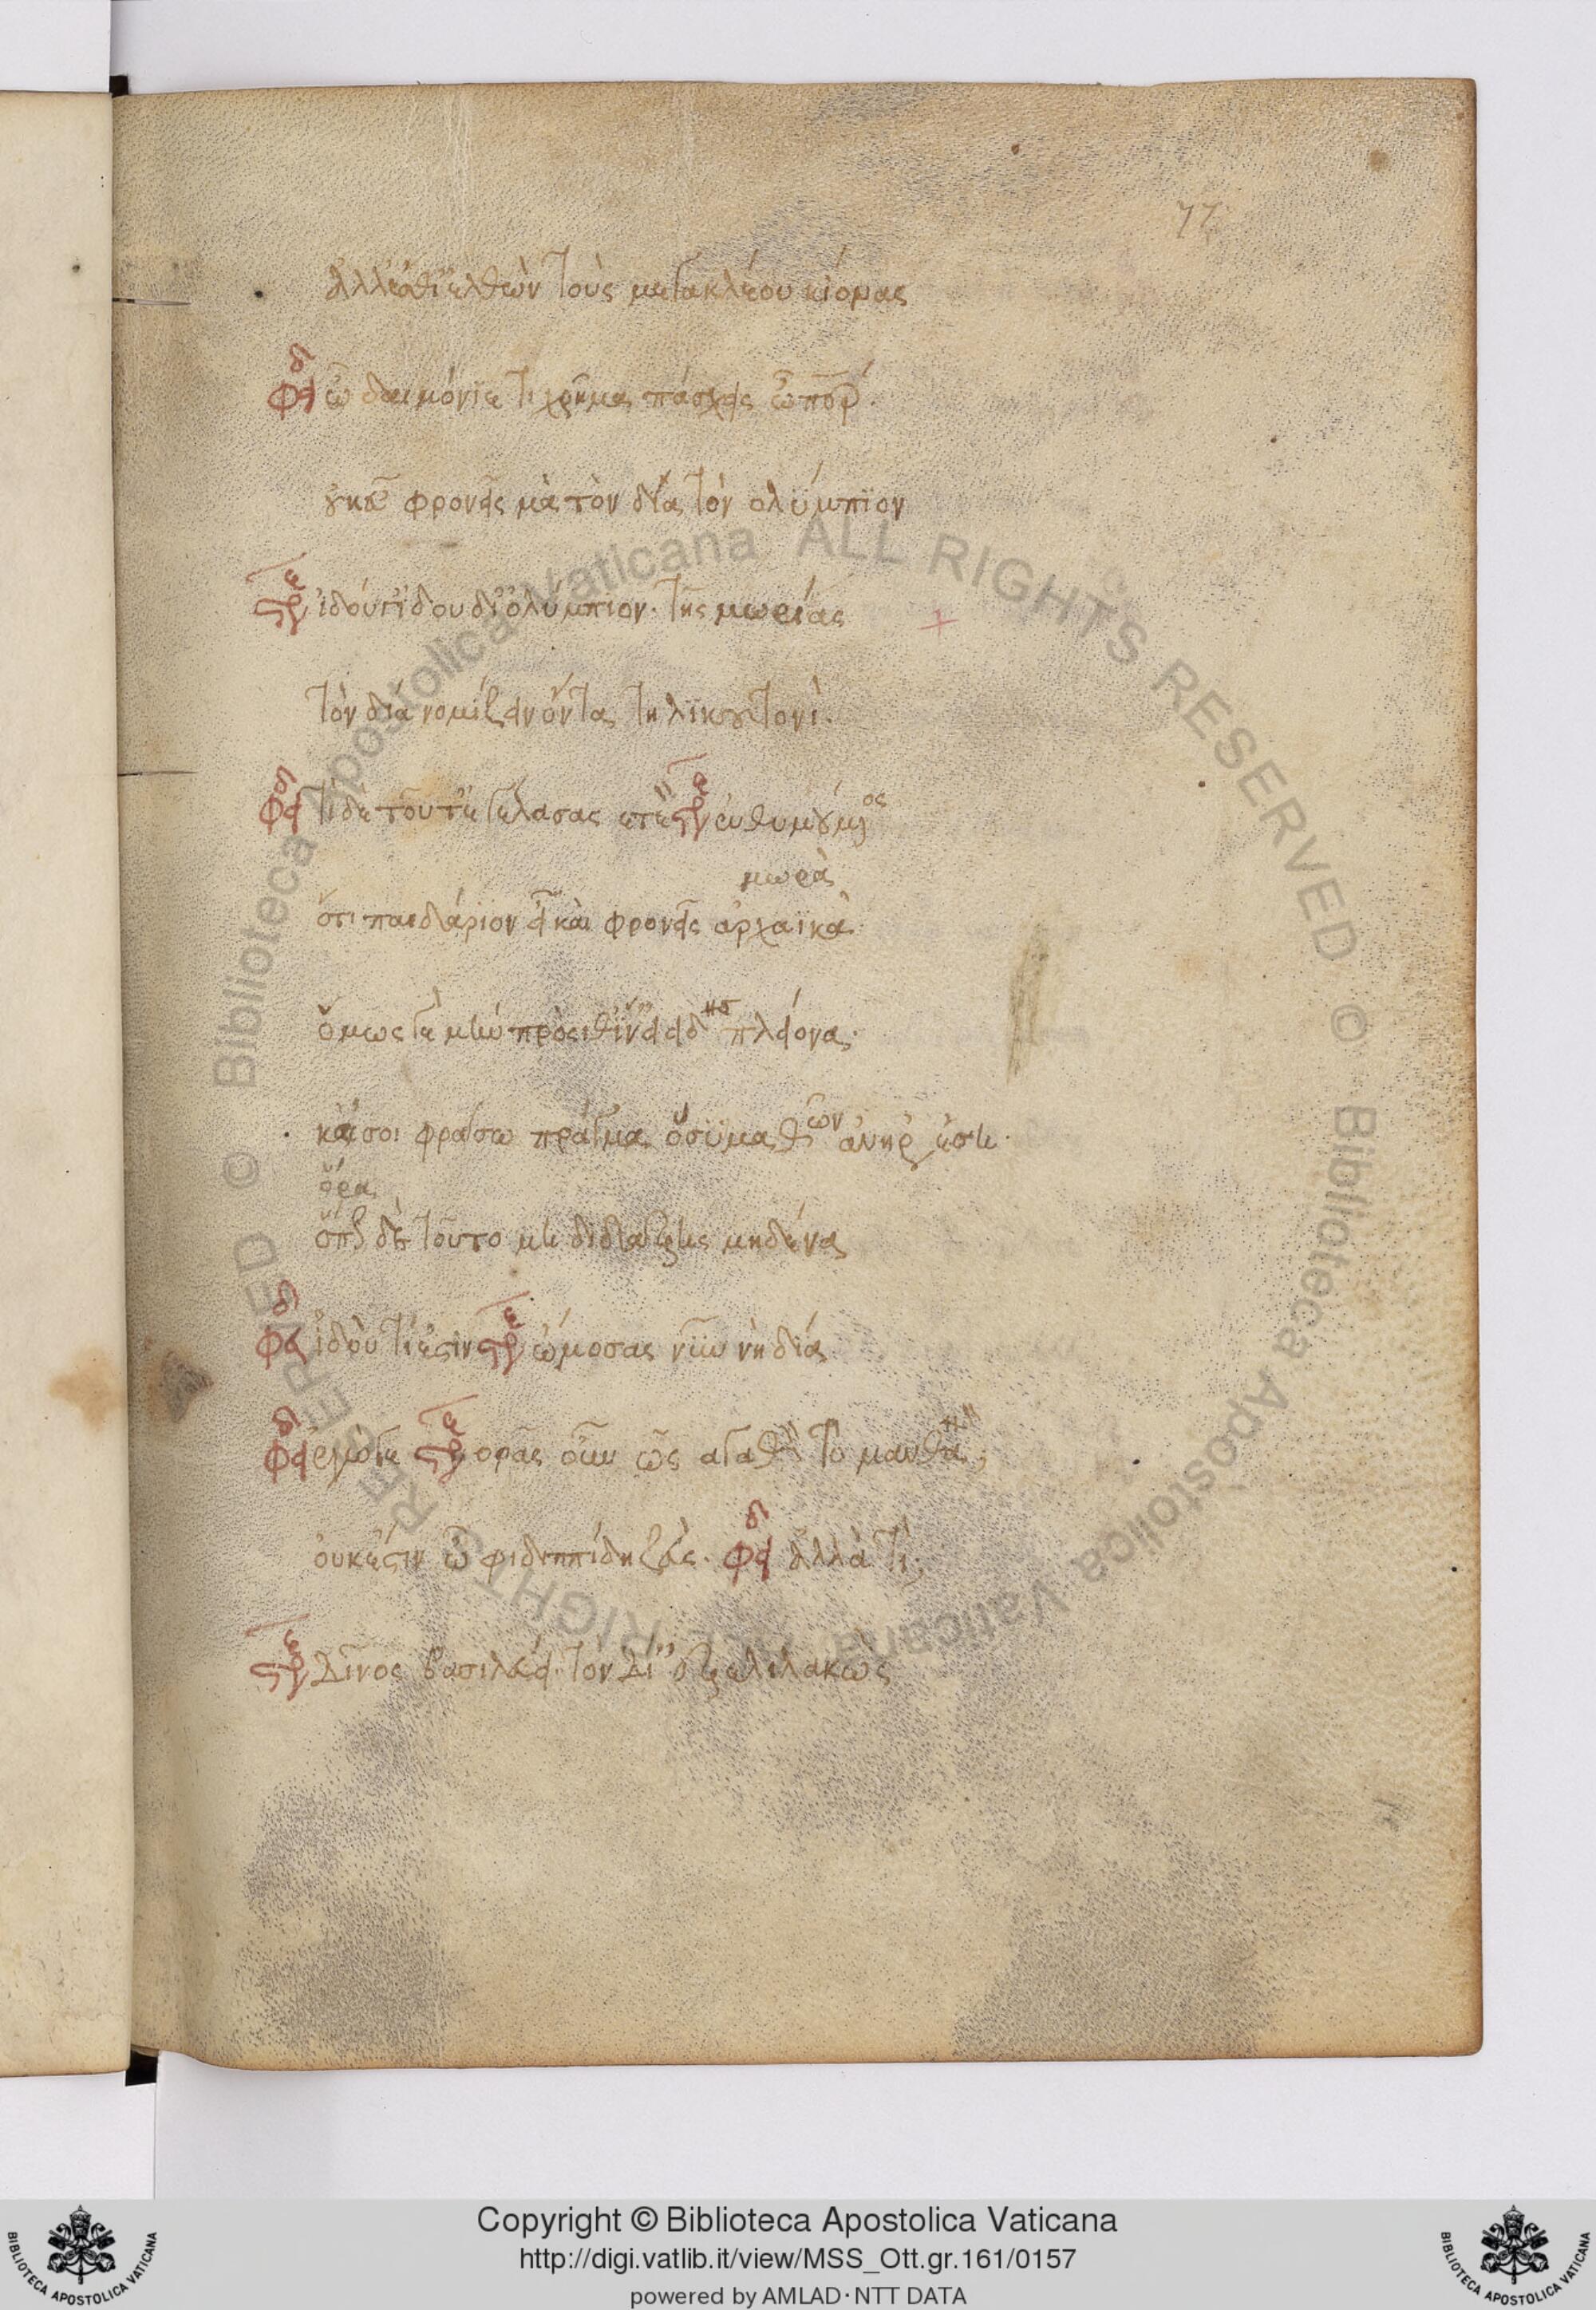 77
ἀλλ' ἔσθι' ἐλθὼν τοὺς μεγακλέου κίονας
φει δ ὦ δαιμόνιε τί χρῆμα πάσχεις ὦ πάτερ.
οὐκ εὖ φρονεῖς μὰ τὸν δία τὸν ολύμπιον
στρε ἰδού γ' ἰδου δί' ὀλύμπιον. τῆς μωρίας
τὸν δία νομίζειν ὄντα τηλικουτονί.
φει δ τί δὲ τοῦτ' ἐγέλασας ἐτεόν στρε ἐνθυμούμενος
μωρὰ
ὅτι παιδάριον εἶ καὶ φρονεῖς ἀρχαϊκά.
ὅμως γε μὴν πρόσιθ' ἵν' εἰδῇς πλείονα.
καί σοι φράσω πρᾶγμα ὃ σὺ μαθὼν ἀνὴρ ἔσῃ.
ὅρα
ὅπως δὲ τοῦτο μὴ διδάξῃς μηδένα
φει δ ἰδοὺ τί ἐστιν στρε ὤμοσας νῦν νὴ δία
φει δ ἔγωγε στρε ορᾶς οὖν ὡς αγαθὸν τὸ μανθάνειν;
οὐκ ἔστιν ὦ φειδιππίδη ζεύς. φει δ ἀλλὰ τί;
στρε Δῖνος βασιλεύει τὸν Δί' ἐξεληλακώς
Copyright © Biblioteca Apostolica Vaticana
http://digi.vatlib.it/view/MSS_Ott.gr.161/0157
powered by AMLAD·NTT DATA
BIBLIOTECA APOSTOLICA VATICANA
BIBLIOTECA APOSTOLICA VATICANA
© Biblioteca Apostolica Vaticana ALL RIGHTS RESERVED © Biblioteca Apostolica Vaticana ALL RIGHTS RESERVED